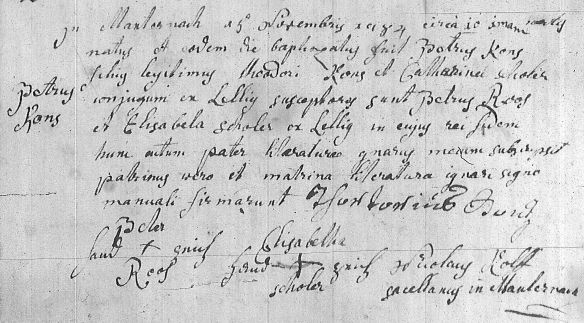 in Manternach 15 Novembris 1784 circa 10 mam noctis
natus et eodem die baptizatus fuit Petrus Kons
filius legitimus theodori Kons et Catharinæ scholer
Petrus Kons
conjugum ex Lellig susceptores sunt Petrus Roos
et Elisabeta scholer ex Lellig in cujus rei fidem
pater literaturæ gnarus mecum subscripsit
patrinus vero et matrina literaturæ ignari signo
manuali firmarunt
Peter
hand + zeich
Roos
Elisabetha
hand + zeich
scholer
Nicolaus Kolff
sacellanus in Manternach